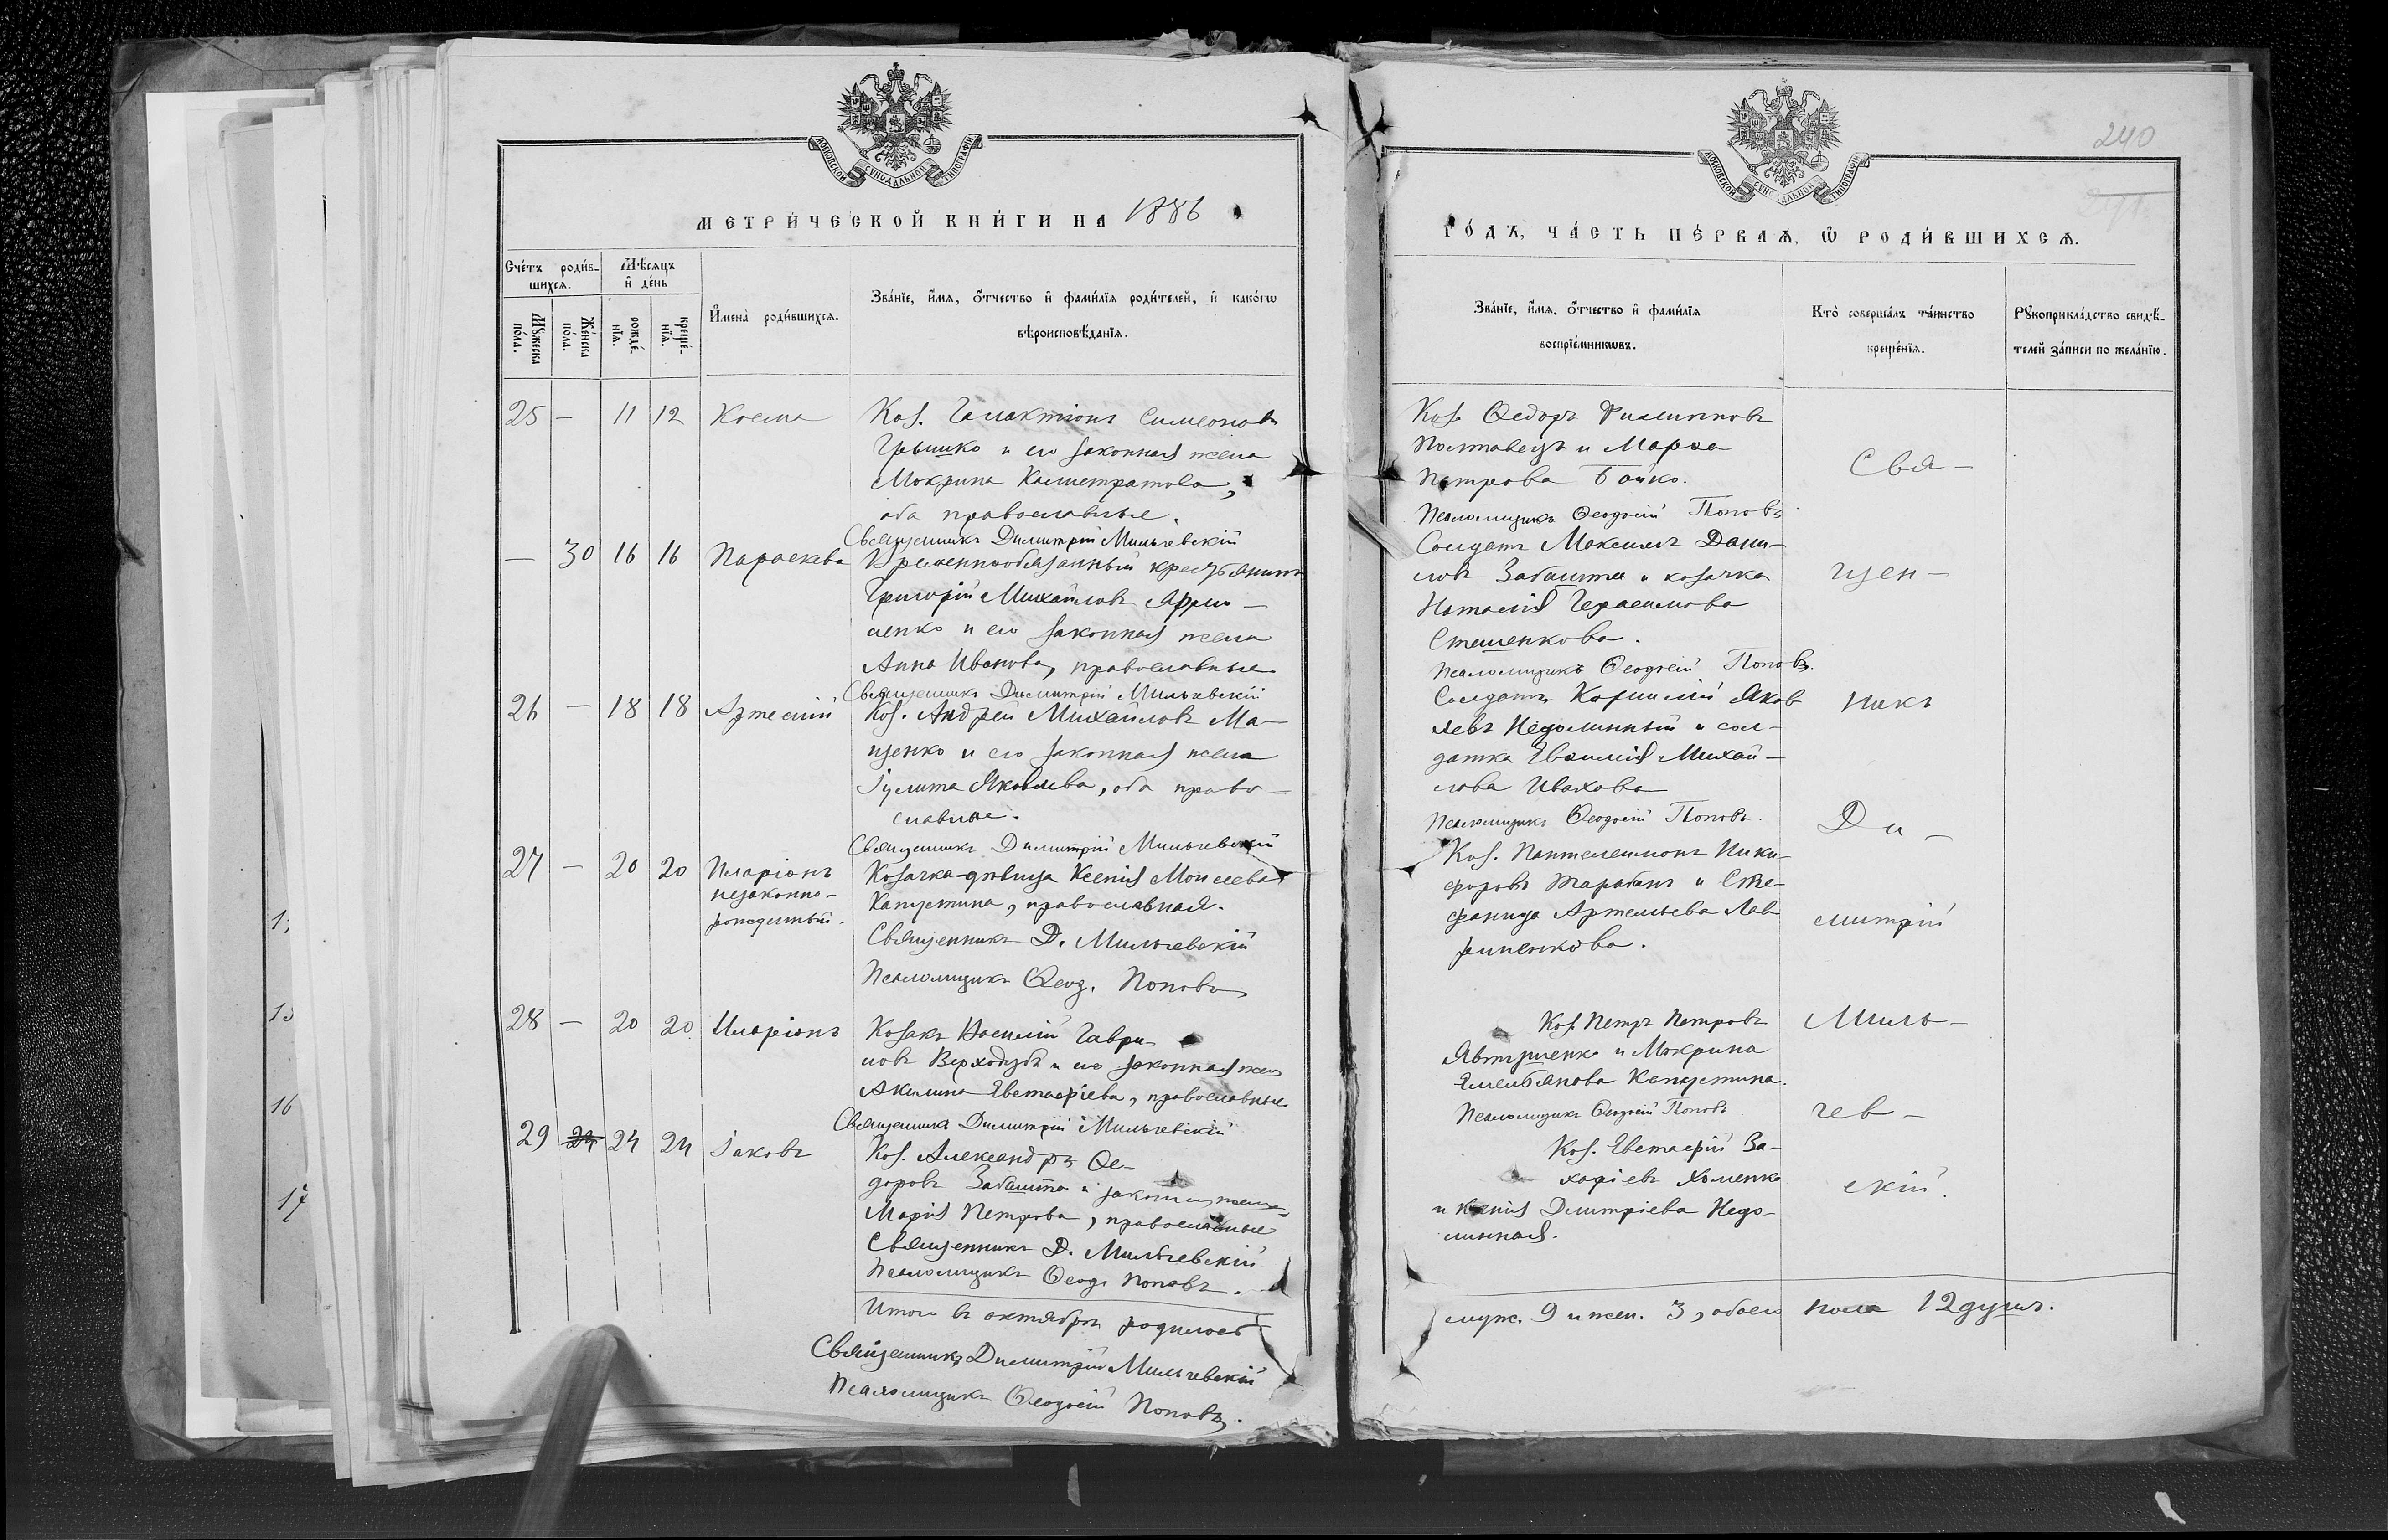 МОСКОВСКОЙ СѴНОДАЛЬНОЙ ТИПОГРАФІИ
МЕТРИ́ЧЕСКОЙ КНИ́ГИ НА 1886
Сче́тъ роди́в-
шихсѧ.
Мѣ́сѧцъ
и҆ де́нь
Мꙋ́жеска
по́ла.
Же́нска
по́ла.
рожде́-
нїѧ.
креще́-
нїѧ.
И҆мена̀ роди́вшихсѧ.
Зва́нїе, и҆́мѧ, ѻ҆́тчество и҆ фами́лїѧ роди́телей, и҆ како́гѡ
вѣроисповѣ́данїѧ.
25 — 11 12 Косма Коз. Галактіонъ Симеоновъ
Грышко и его законная жена
Мокрина Калистратова,
оба православные.
Священникъ Димитрій Мильчевскій
— 30 16 16 Параскева Временнообязанный крестьянинъ
Григорій Михайловъ
ченко и его законная жена
Анна Иванова, православные
Священникъ Димитрій Мильчевскій
26 — 18 18 Артемій Коз. Андрей Михайловъ Ма-
ценко и его законная жена
Іулита Яковлева, оба право-
славные.
Священникъ Димитрій Мильчевскій
27 — 20 20 Иларіонъ Козачка-дѣвица Ксенія Моисеева
незаконно-
рожденный.
Капустина, православная.
Священникъ Д. Мильчевскій
Псаломщикъ Ѳеод. Поповъ
28 — 20 20 Иларіонъ Козакъ Василій Гаври-
ловъ Верходубъ и его законная жена
Акилина Евстафіева, православные
Священникъ Димитрій Мильчевскій
29 24 24 24 Іаковъ Коз. Александръ Ѳе-
доровъ Забашта и законная жена
Марія Петрова, православные
Священникъ Д. Мильчевскій
Псаломщикъ Ѳеод. Поповъ.
Итого въ октябрѣ родилось
Священникъ Димитрій Мильчевскій
Псаломщикъ Ѳеодосій Поповъ.
240
МОСКОВСКОЙ СѴНОДАЛЬНОЙ ТИПОГРАФІИ
ГО́ДЪ, ЧА́СТЬ ПЕ́РВАѦ, Ѡ҆ РОДИ́ВШИХСѦ.
Зва́нїе, и҆́мѧ, ѻ҆́тчество и҆ фами́лїѧ
воспрїе́мникѡвъ.
Кто̀ соверша́лъ та́инство
креще́нїѧ.
Рꙋкоприкла́дство свидѣ́-
телей за́писи по жела́нїю.
Коз. Ѳедоръ Филипповъ
Полтавецъ и Марѳа
Петрова Бойко.
Свя-
Псаломщикъ Ѳеодосій Поповъ
Солдатъ Максимъ Дани-
ловъ Забашта и козачка
щен-
Наталія Герасимова
Стешенкова.
Псаломщикъ Ѳеодосій Поповъ.
Солдатъ Корнилій Яков-
никъ
левъ Недолинный и сол-
датка Евфимія Михай-
лова Ивахова
Псаломщикъ Ѳеодосій Поповъ.
Ди-
Коз. Пантелеимонъ Ники-
форовъ Тарабанъ и Сте-
фанида Артемьева Лав-
митрій
риненкова.
Коз. Петръ Петровъ
Миль-
Явтушенко и Мокрина
Емельянова Капустина.
Псаломщикъ Ѳеодосій Поповъ
чев-
Коз. Евстафій За-
харіевъ Хоменко
скій.
и Ксенія Димитріева Недо-
линная.
муж. 9 и жен. 3, обоего пола 12 душъ.
15
16
17